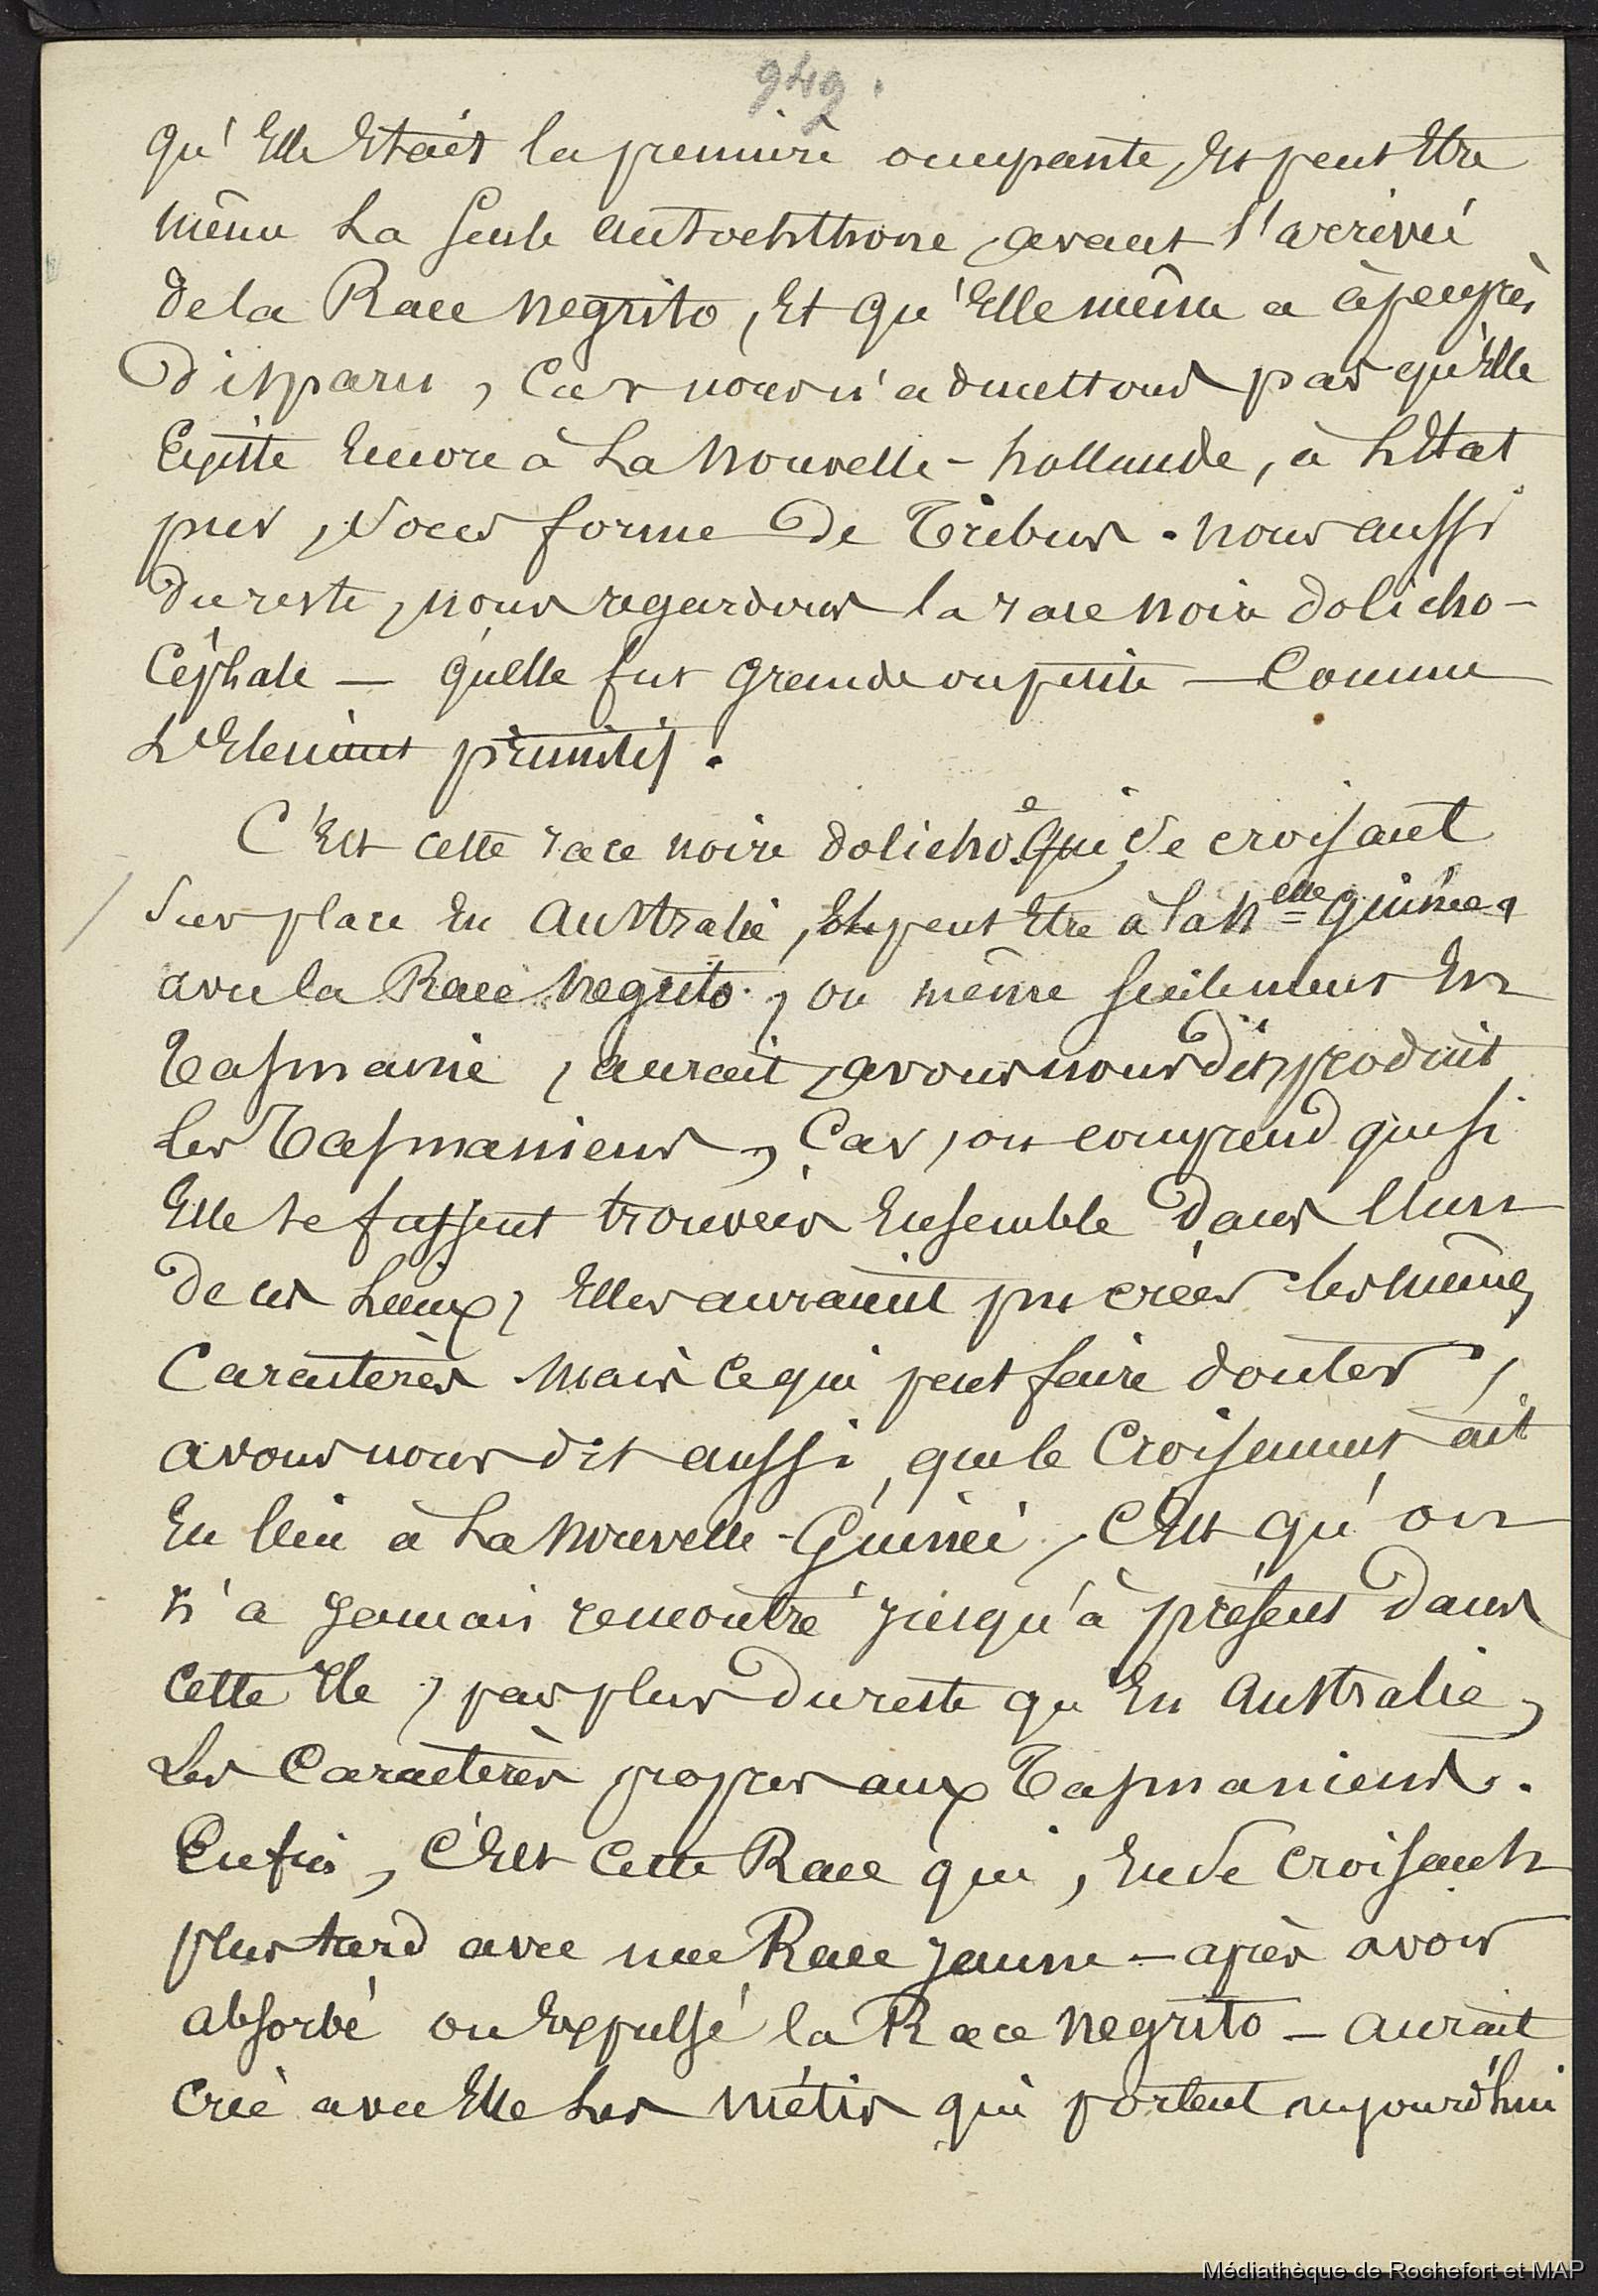 949.
qu'Elle Etait la premiere occupante, Et peut Etre
même La Seule autochthone, avant l'arrivée
de la Race Negrito, Et qu'Elle même a àpeuprès
Disparu, Car nous n'admettons pas qu'Elle
Existe Encore à La Nouvelle-hollande, à L'Etat
pur, Sous forme de Tribus. Nous aussi
du reste, nous regardons la race noire dolicho-
Céphale — qu'elle fut grande ou petite — Comme
L'Elément primitif.
C'Est cette race noire dolicho.e qui, Se croisant
Sur place En Australie, Et peut Etre à la Nelle Guinée,
avec la Race Negrito, ou même Seulement En
Tasmanie, aurait, avons nous dit, produit
les Tasmaniens, Car, on comprend que si
Elle se fussent trouvées Ensemble dans l'un
de ces Lieux, Elles auraient pu créer les mêmes
Caractères. Mais ce qui peut faire douter,
avons nous dit aussi, que le Croisement ait
Eu lieu à La Nouvelle-Guinée, C'Est qu'on
n'a jamais rencontré jusqu'à présent dans
cette Ile, pas plus du reste qu'En Australie,
Les Caractères propres aux Tasmaniens.
Enfin, C'Est Cette Race qui, En Se Croisant
plus tard avec une Race jaune — après avoir
absorbé ou Expulsé la Race Negrito — aurait
créé avec Elle Les Métis qui portent aujourd'hui
Médiathèque de Rochefort et MAP